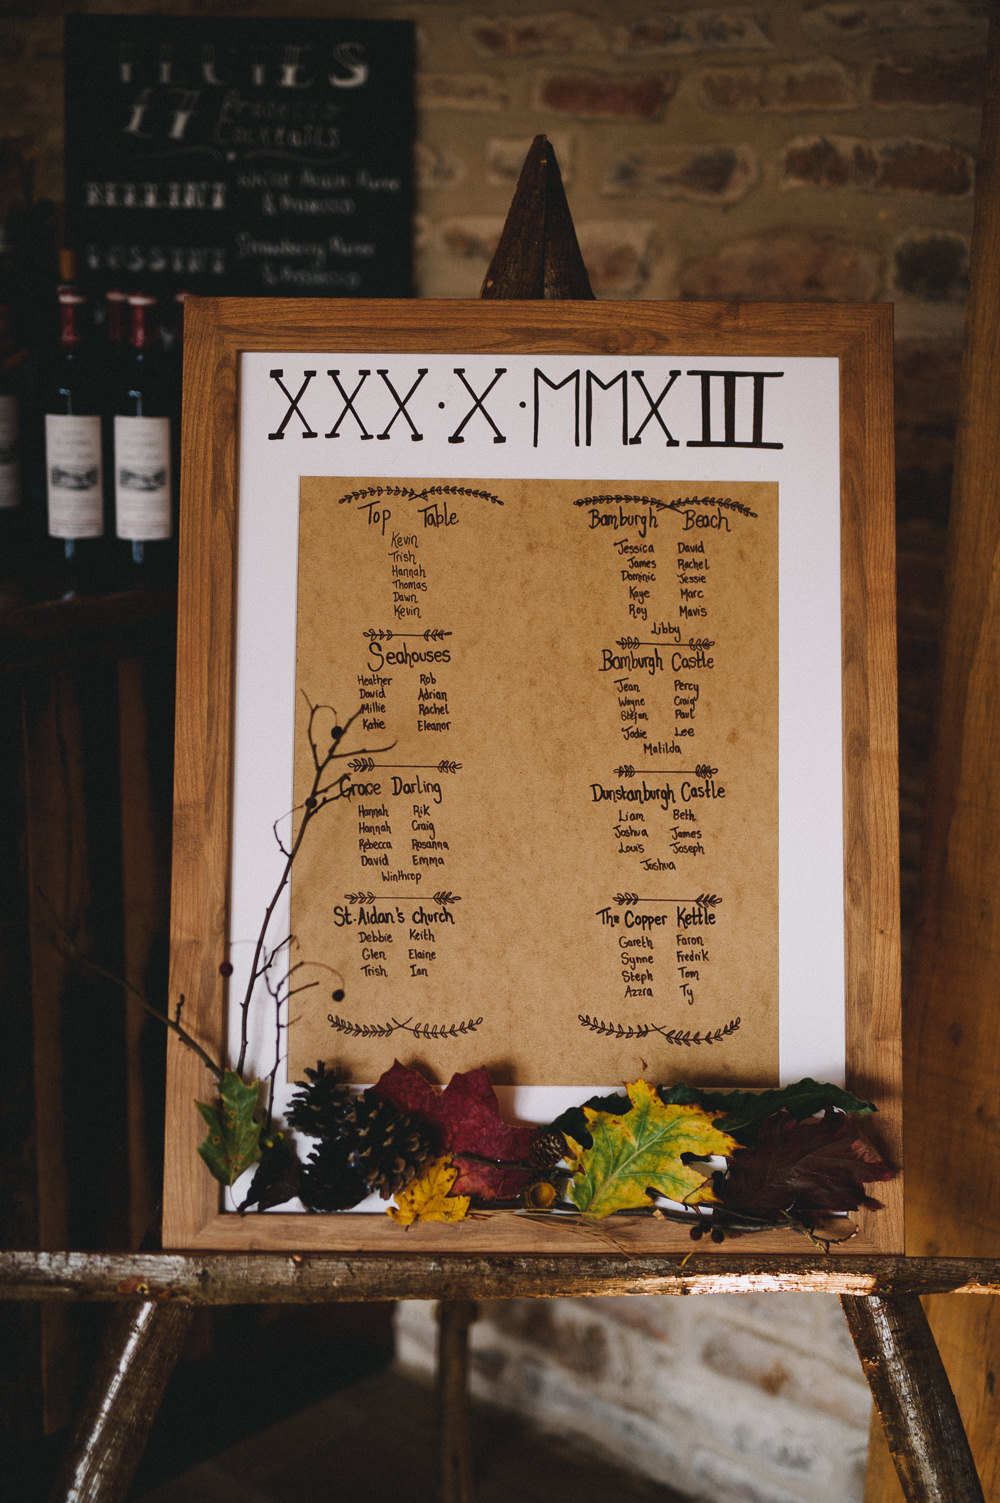 £7 Prosecco
Cocktails
BELLINI White Peach Puree
& Prosecco
ROSSINI Strawberry Puree
& Prosecco
XXX·X·MMXIII
Top Table
Kevin
Trish
Hannah
Thomas
Dawn
Kevin
Seahouses
Heather Rob
David Adrian
Millie Rachel
Katie Eleanor
Grace Darling
Hannah Rik
Hannah Craig
Rebecca Rosanna
David Emma
Winthrop
St. Aidan's church
Debbie Keith
Glen Elaine
Trish Ian
Bamburgh Beach
Jessica David
James Rachel
Dominic Jessie
Kaye Marc
Roy Mavis
Libby
Bamburgh Castle
Jean Percy
Wayne Craig
Stefan Paul
Jodie Lee
Matilda
Dunstanburgh Castle
Liam Beth
Joshua James
Louis Joseph
Joshua
The Copper Kettle
Gareth Faron
Synne Fredrik
Steph Tom
Azzra Ty